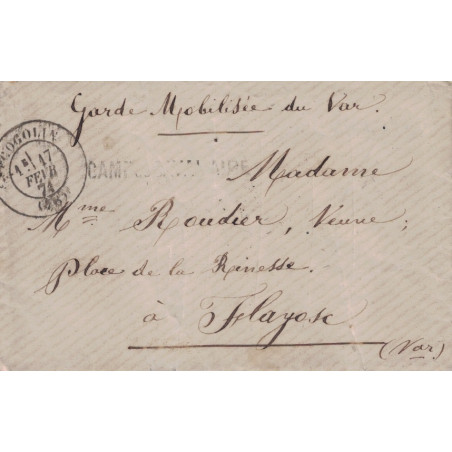 Garde Mobilisée du Var.
COGOLIN
17
FEVR
71
CAMP
Madame
Mme Roudier, Veuve;
Place de la Rinesse.
à Flayosc
(Var)